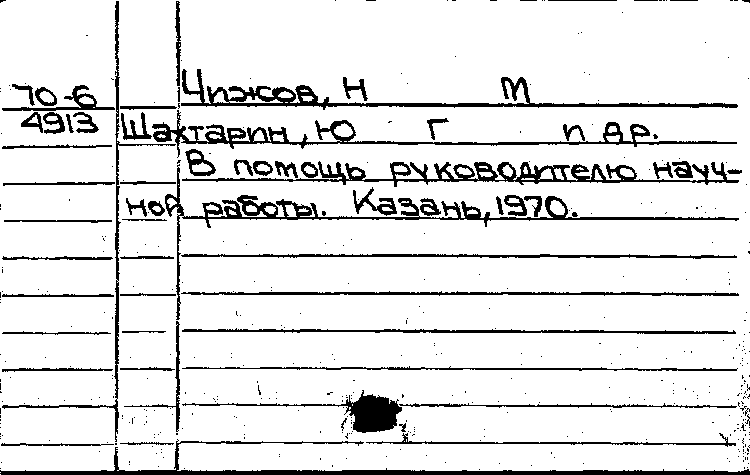 70-6 Чижов, Н М
4913 Шахтарин, Ю Г и др.
В помощь руководителю науч-
ной работы. Казань, 1970.